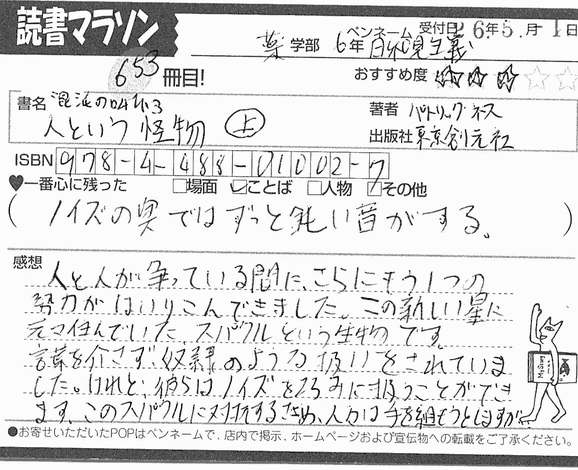 読書マラソン
ペンネーム 受付日 6年5月1日
薬学部 6年 日和見主義
653冊目!
おすすめ度 ☆☆☆☆☆
書名 混沌の叫び3
人という怪物 上
著者 パトリック・ネス
出版社 東京創元社
ISBN 978-4-488-01002-7
♥一番心に残った □場面 ☑ことば □人物 □その他
(ノイズの奥ではずっと鈍い音がする。)
感想
人と人が争っている間に、こちらにもう1つの
努力がはいりこんできました。この新しい星に
元々住んでいた、スパクルという生物です。
言葉を介さず、奴隷のような扱いをされていま
した。けれど、彼らはノイズを巧みに扱うことができ
ます。このスパクルに対抗するため、人々は手を組もうとしますが…
●お寄せいただいたPOPはペンネームで、店内で掲示、ホームページおよび宣伝物への転載をご了承ください。